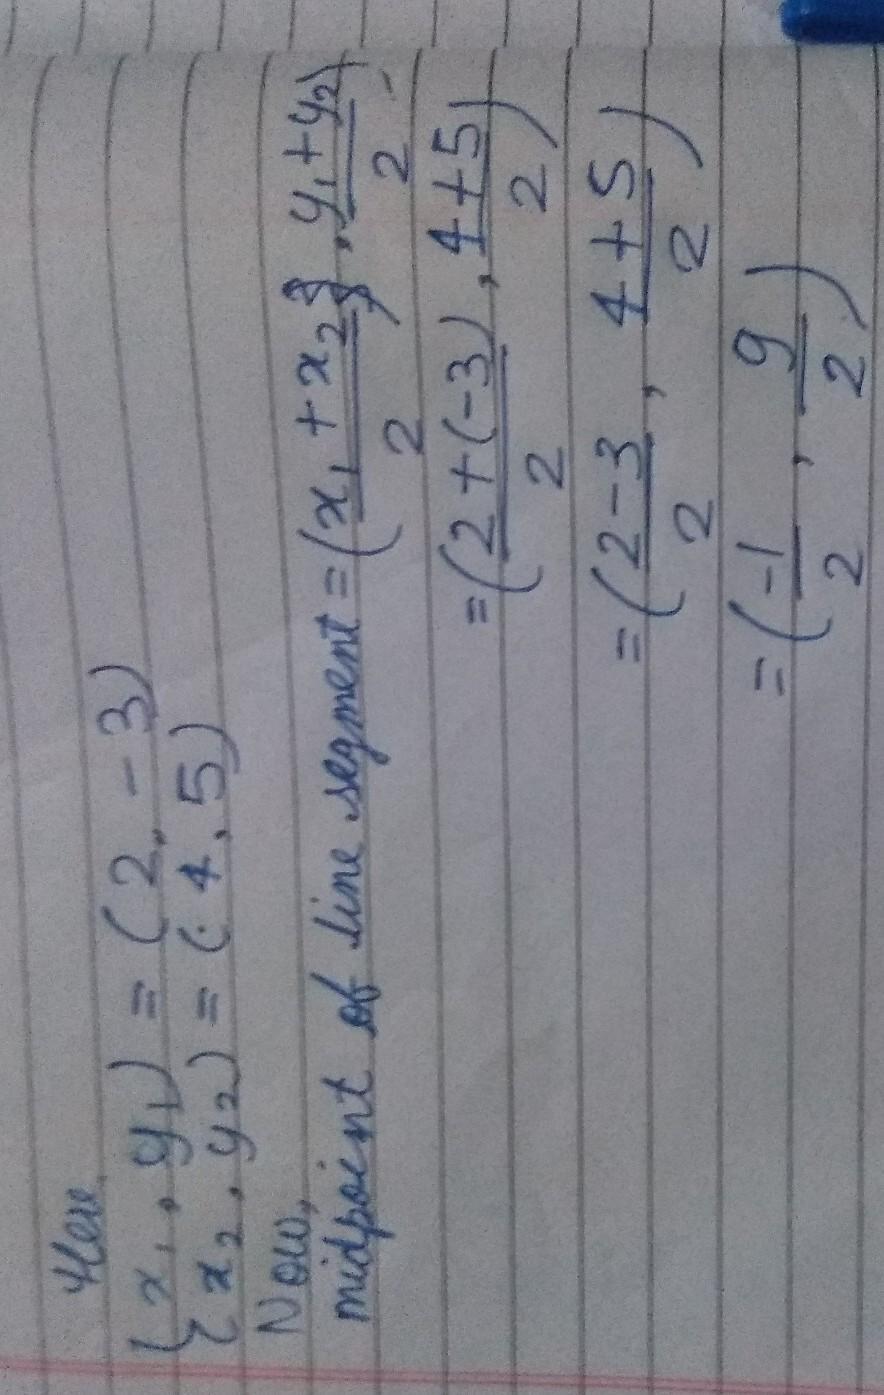 Here
{ x₁, y₁) = (2, -3)
{ x₂, y₂) = (4, 5)
Now,
midpoint of line segment = (x₁ + x₂/2, y₁ + y₂/2)
= (2 + (-3)/2, 4 + 5/2)
= (2 - 3/2, 4 + 5/2)
= (-1/2, 9/2)